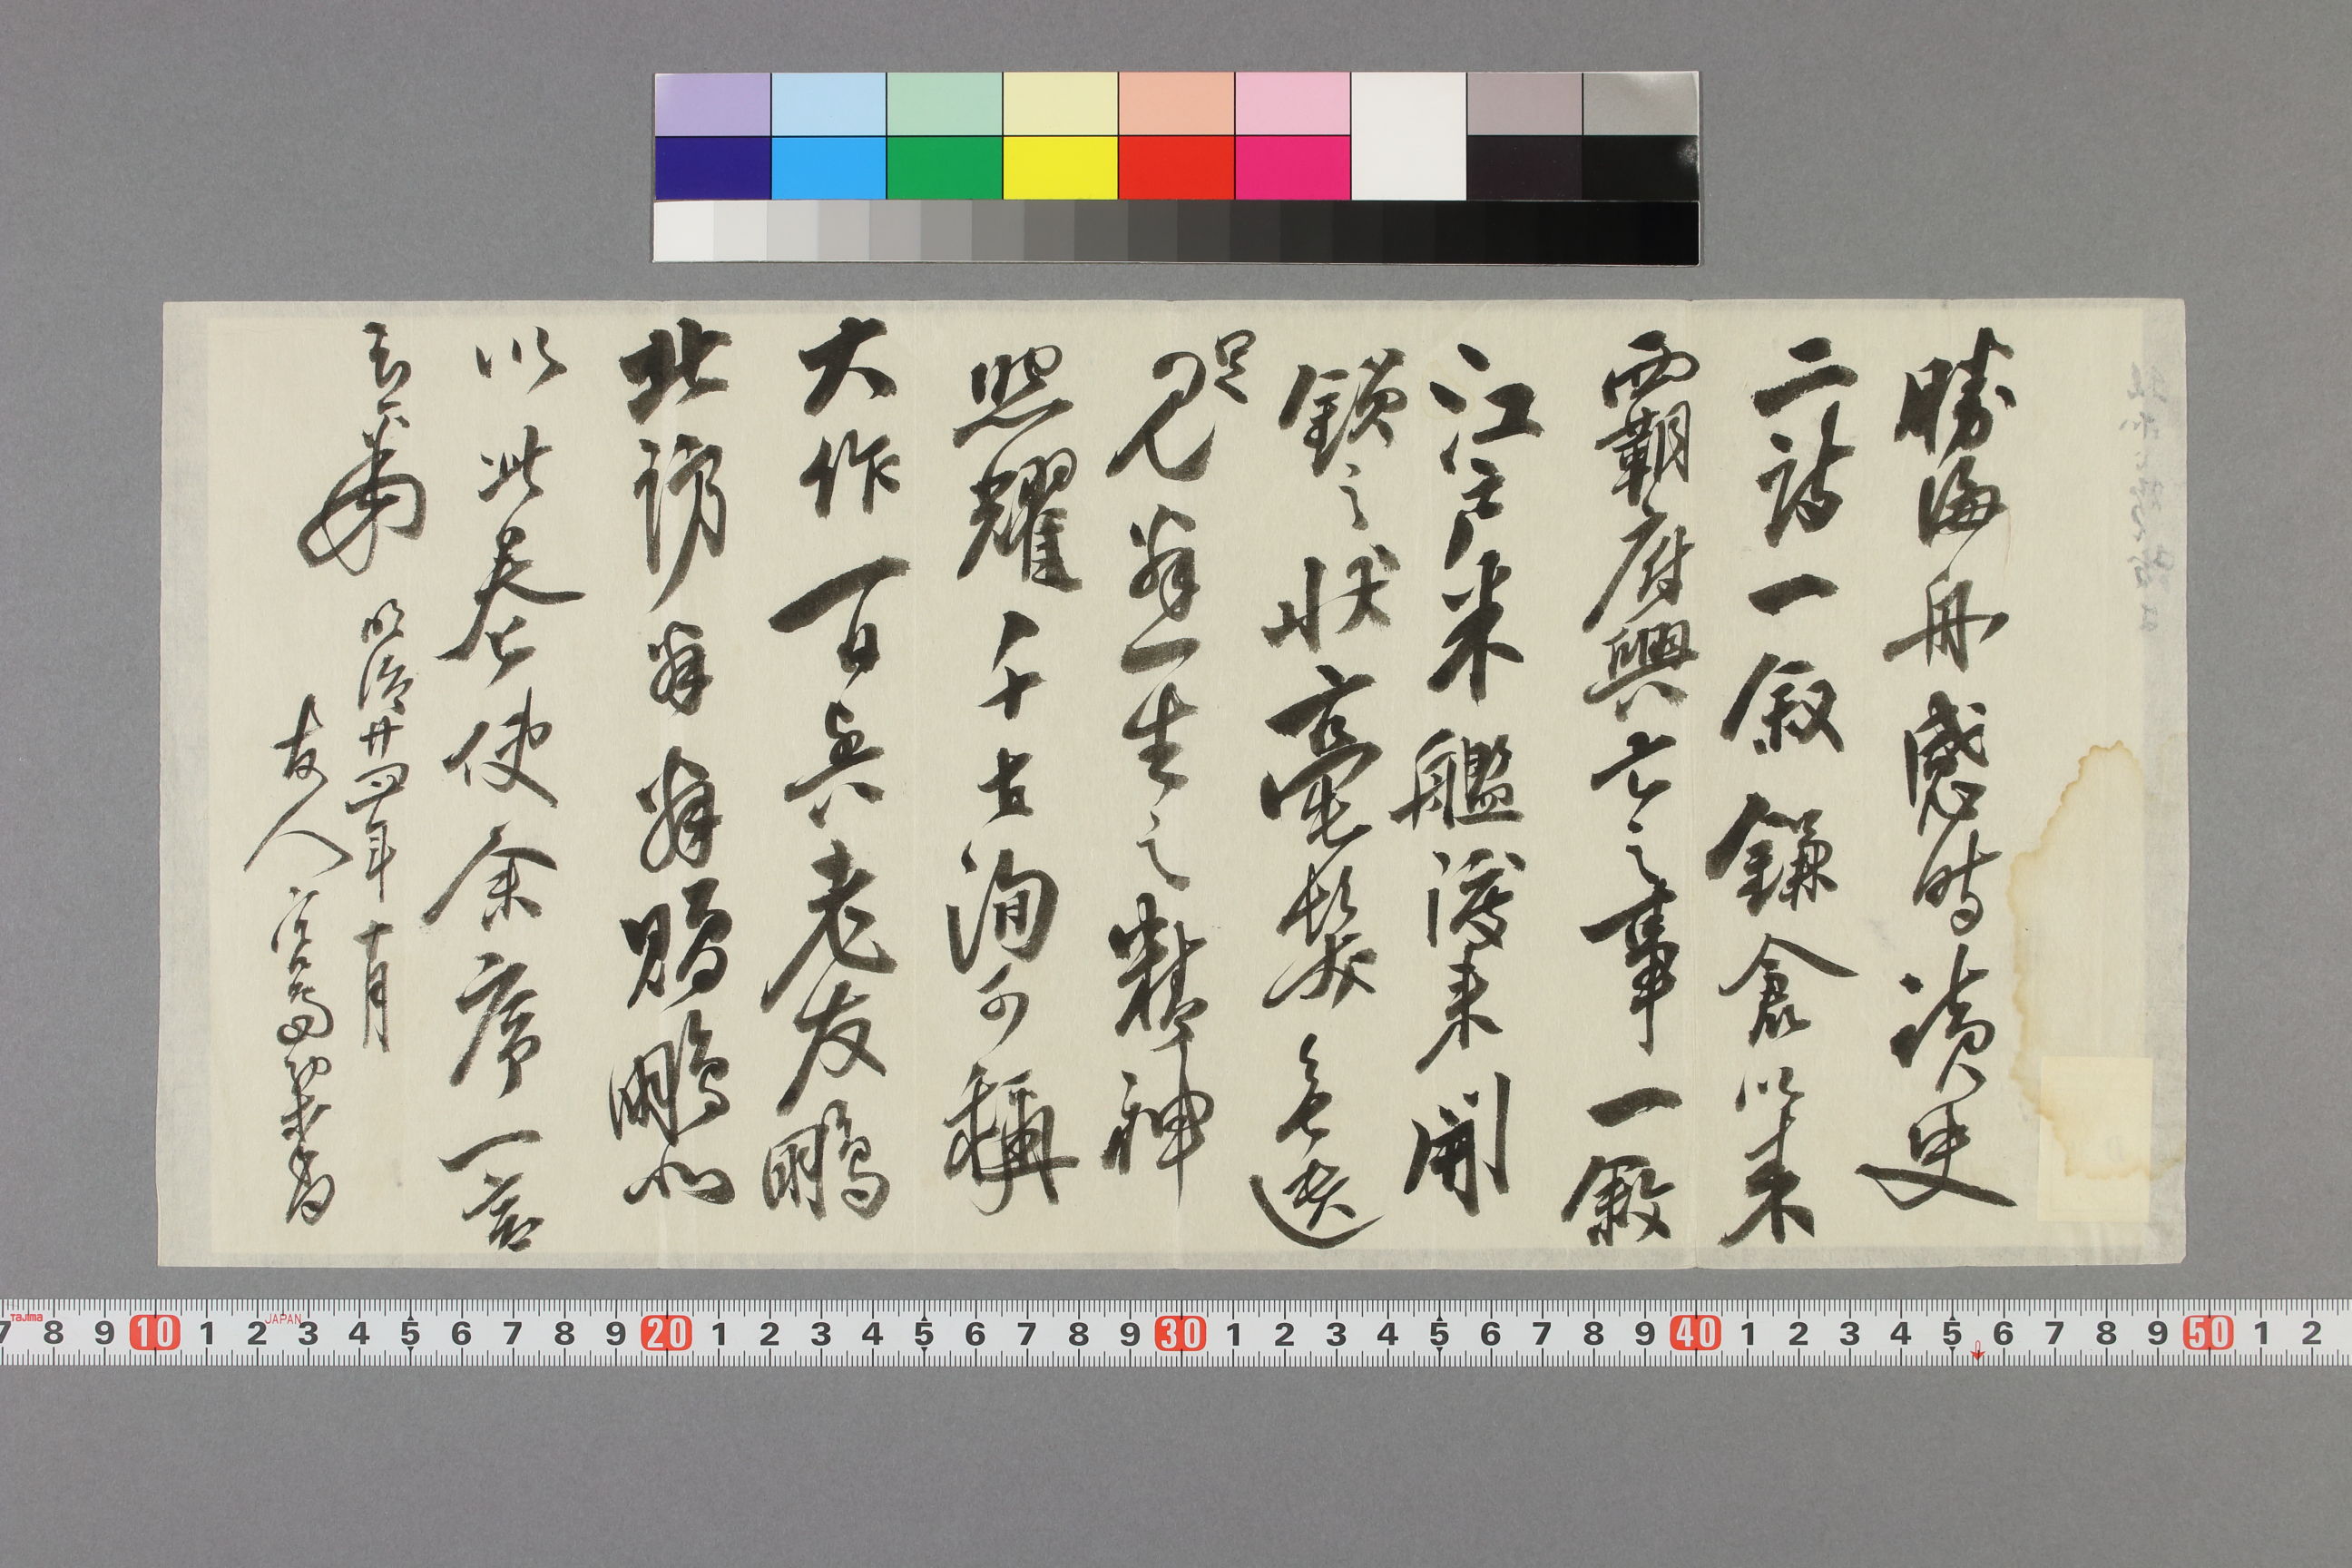 勝海舟感時讀史
二詩一叙鎌倉以来
両覇府興亡之事一叙
江戸米艦渡来開
鎖之状高毫髮無遺
足見翁一生之精神
照耀千古洵可稱
大作百兵老友鵬
北訪翁翁賜鵬
以此巻使余序一言
友人
明治廿四年十月
7 8 9 10 1 2 3 4 5 6 7 8 9 20 1 2 3 4 5 6 7 8 9 30 1 2 3 4 5 6 7 8 9 40 1 2 3 4 5 6 7 8 9 50 1 2
Tajima
JAPAN